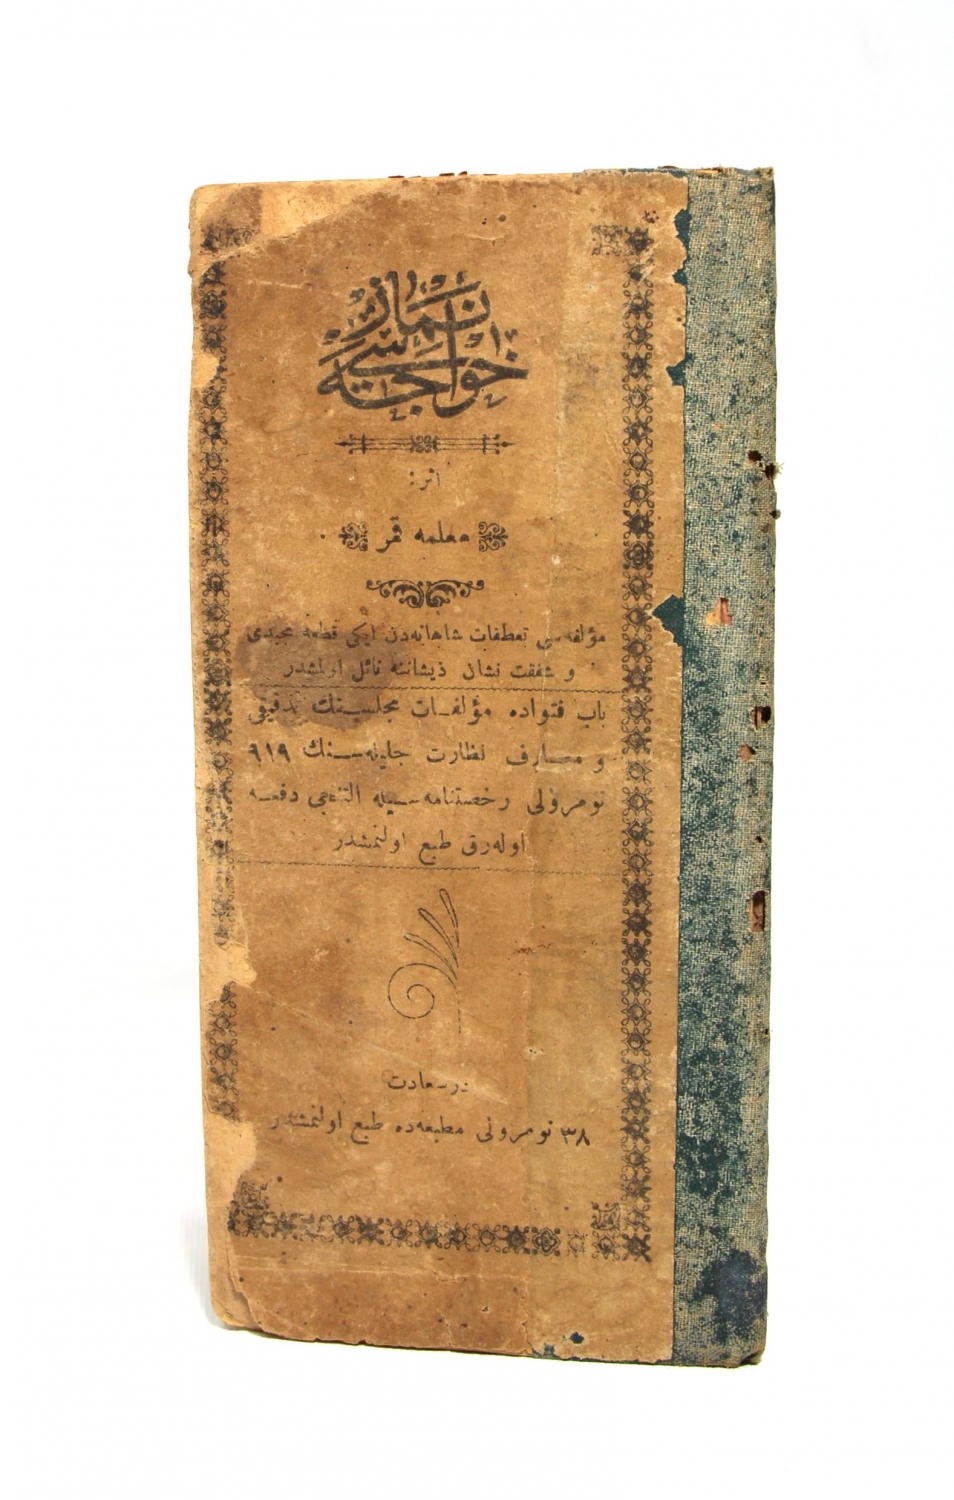 نماز
خواجه‌سی
اثر:
معلمه قمر
مؤلفه‌سی تعطفات شاهانه‌دن ایکی قطعه مجیدی
و شفقت نشان ذیشاننه نائل اولمشدر
باب فتواده مؤلفات مجلسینك تدقیق
و معارف نظارت جلیله‌سنك ٩١٩
نومرولی رخصتنامه‌سیله التنجی دفعه
اوله‌رق طبع اولنمشدر
درسعادت
٣٨ نومرولی مطبعه‌ده طبع اولنمشدر